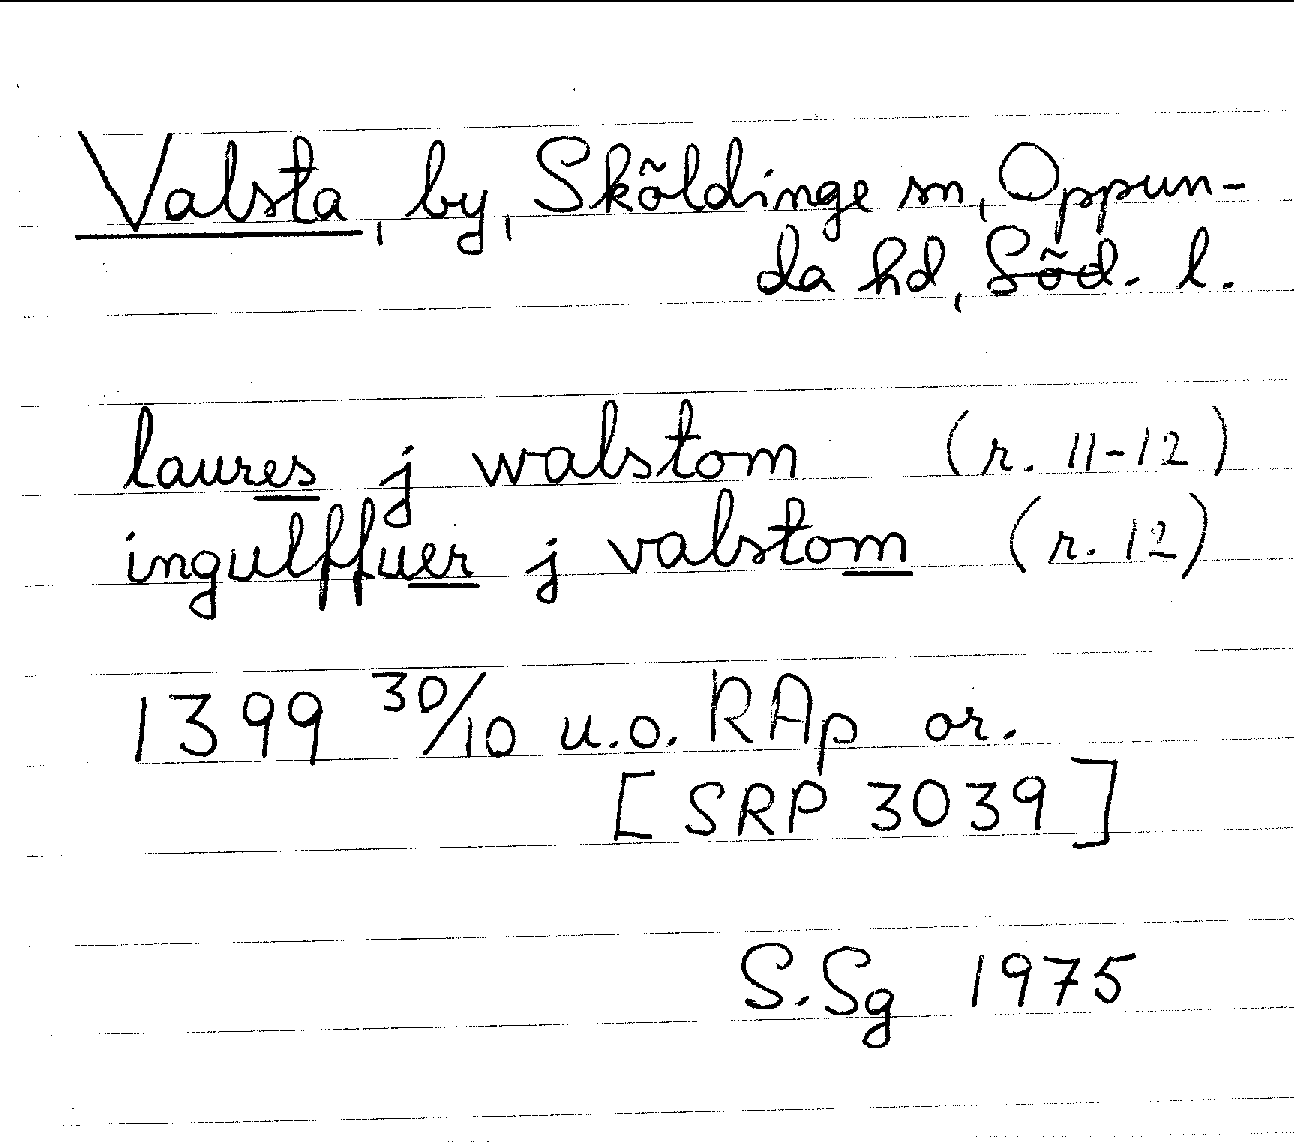 Valsta, by, Sköldinge sn, Oppun-
da hd, Söd. l.
laures j walstom (r. 11-12)
ingulffuer j valstom (r. 12)
1399 30/10 u.o. RAp or.
[SRP 3039]
S.Sg 1975